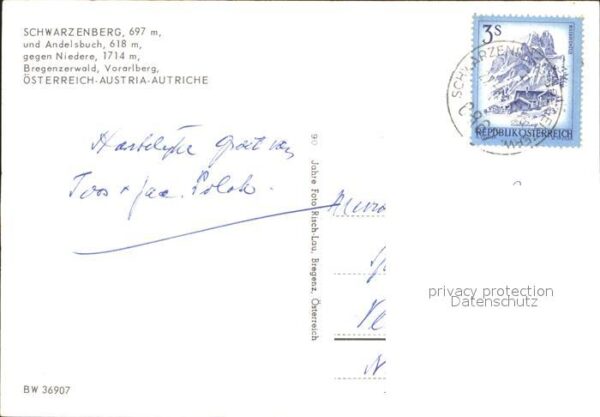 SCHWARZENBERG, 697 m,
und Andelsbuch, 618 m,
gegen Niedere, 1714 m,
Bregenzerwald, Vorarlberg,
ÖSTERREICH-AUSTRIA-AUTRICHE
3S
REPUBLIK ÖSTERREICH
Hartelijke groet van
Toos + Jac. Polak.
90 Jahre Foto Risch-Lau, Bregenz, Österreich
privacy protection
Datenschutz
BW 36907